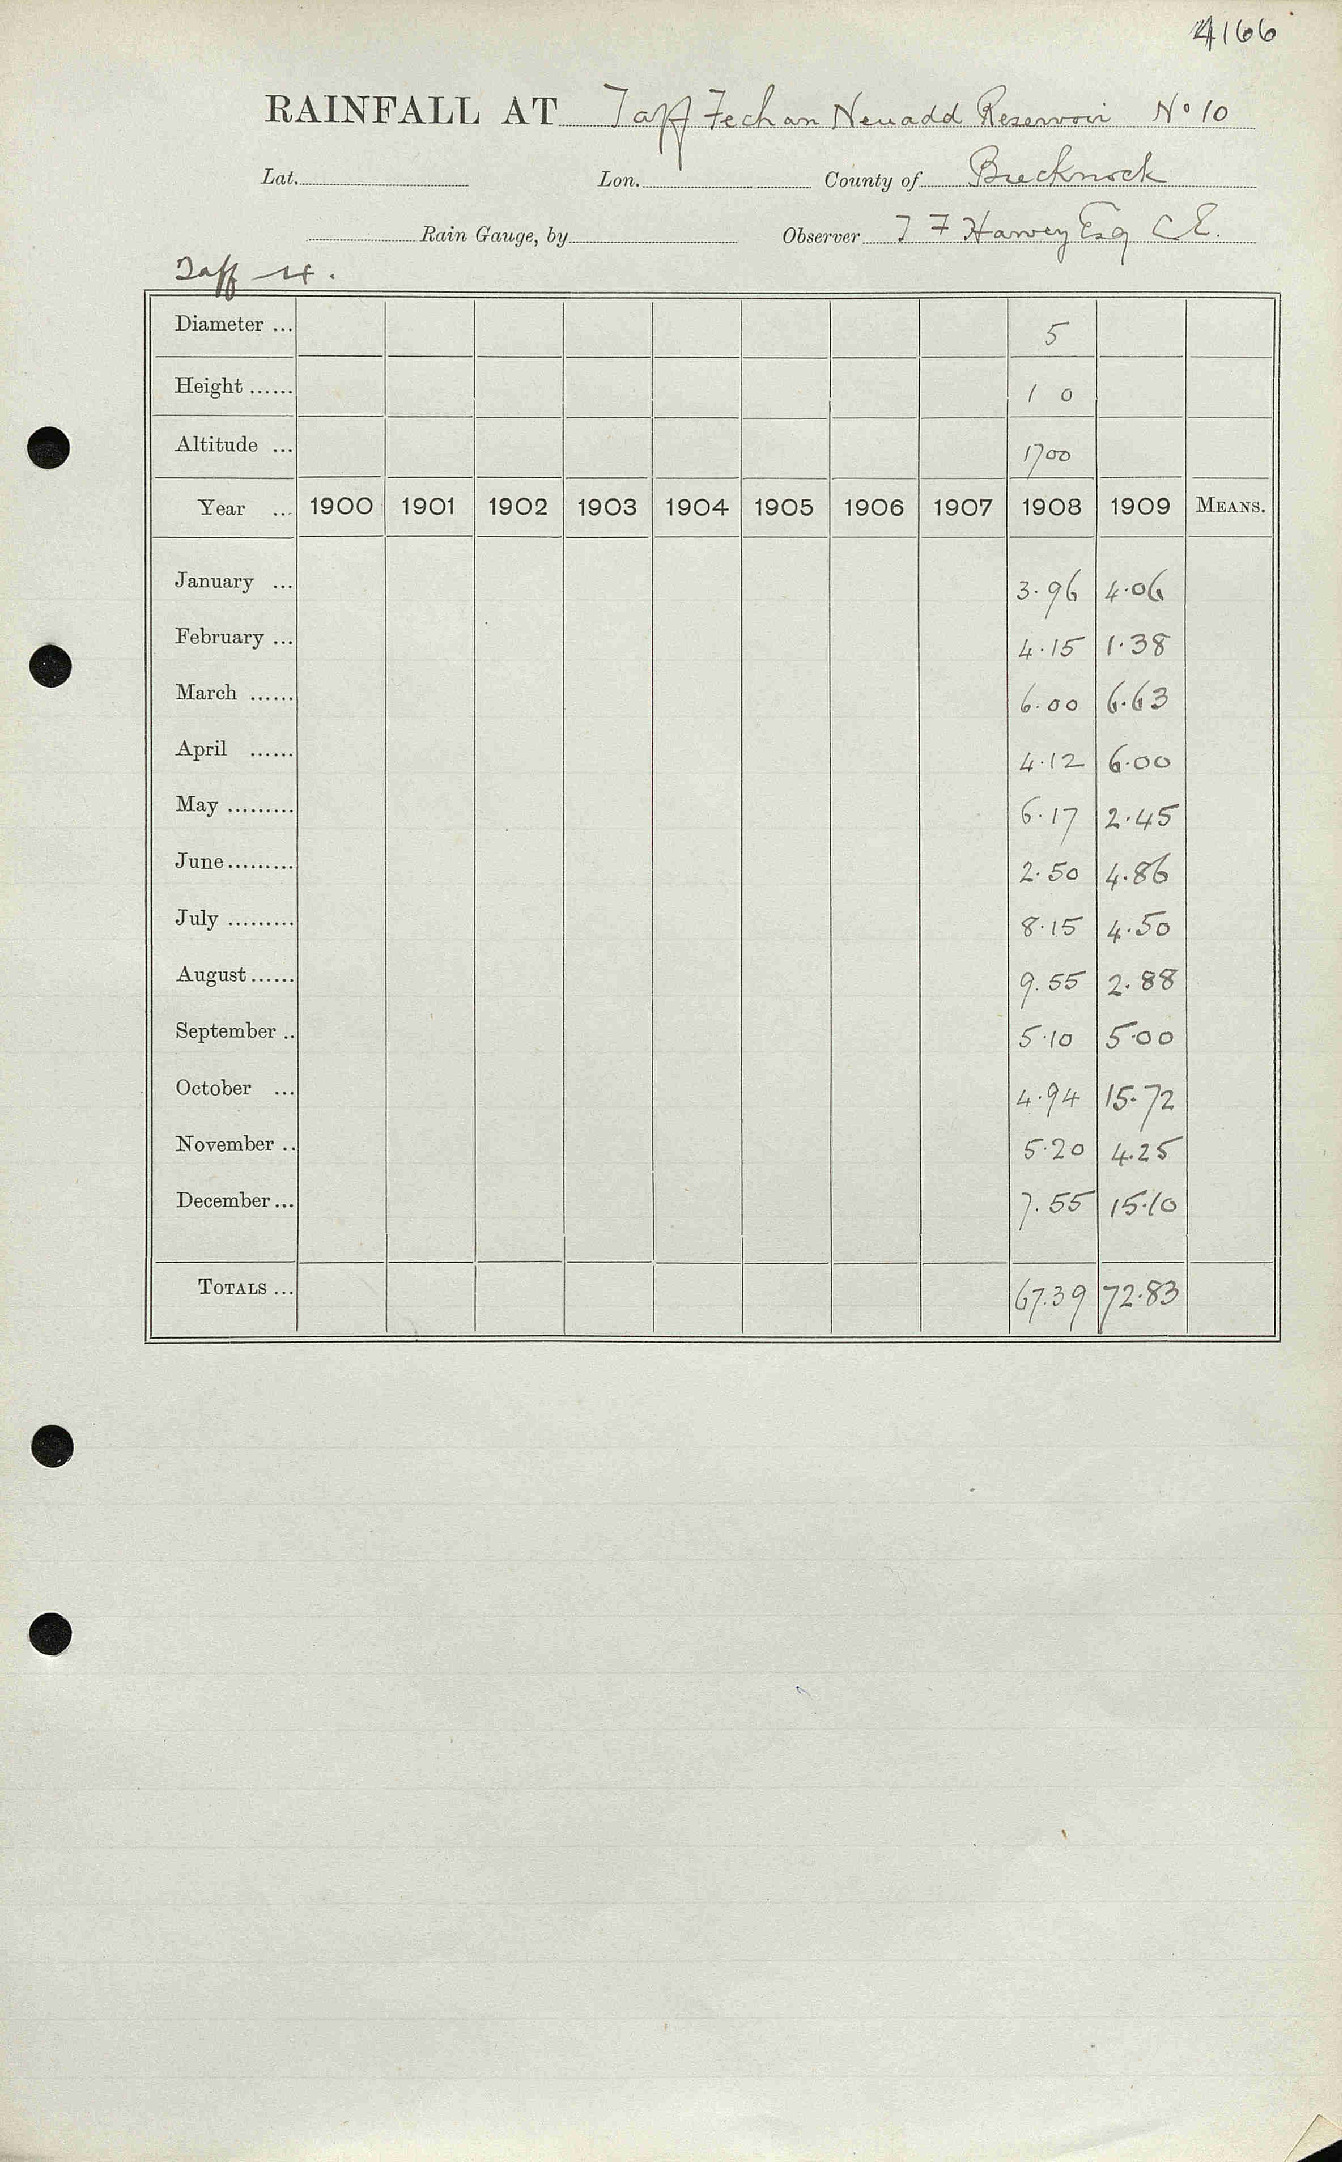 4166
RAINFALL AT Taff Fechan Neuadd Reservoir No 10
Lat. Lon. County of Brecknock
Rain Gauge, by Observer T F Harvey Esq C E.
Taff 4.
Diameter ... 5
Height ...... 1 0
Altitude ... 1700
Year ... 1900 1901 1902 1903 1904 1905 1906 1907 1908 1909 MEANS.
January ... 3.96 4.06
February ... 4.15 1.38
March ...... 6.00 6.63
April ...... 4.12 6.00
May ......... 6.17 2.45
June ......... 2.50 4.86
July ......... 8.15 4.50
August ...... 9.55 2.88
September .. 5.10 5.00
October ... 4.94 15.72
November .. 5.20 4.25
December ... 7.55 15.10
TOTALS ... 67.39 72.83